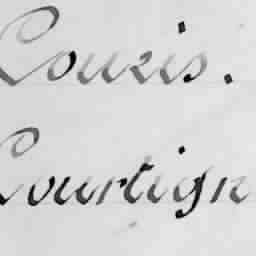 Couzis.
Courtign